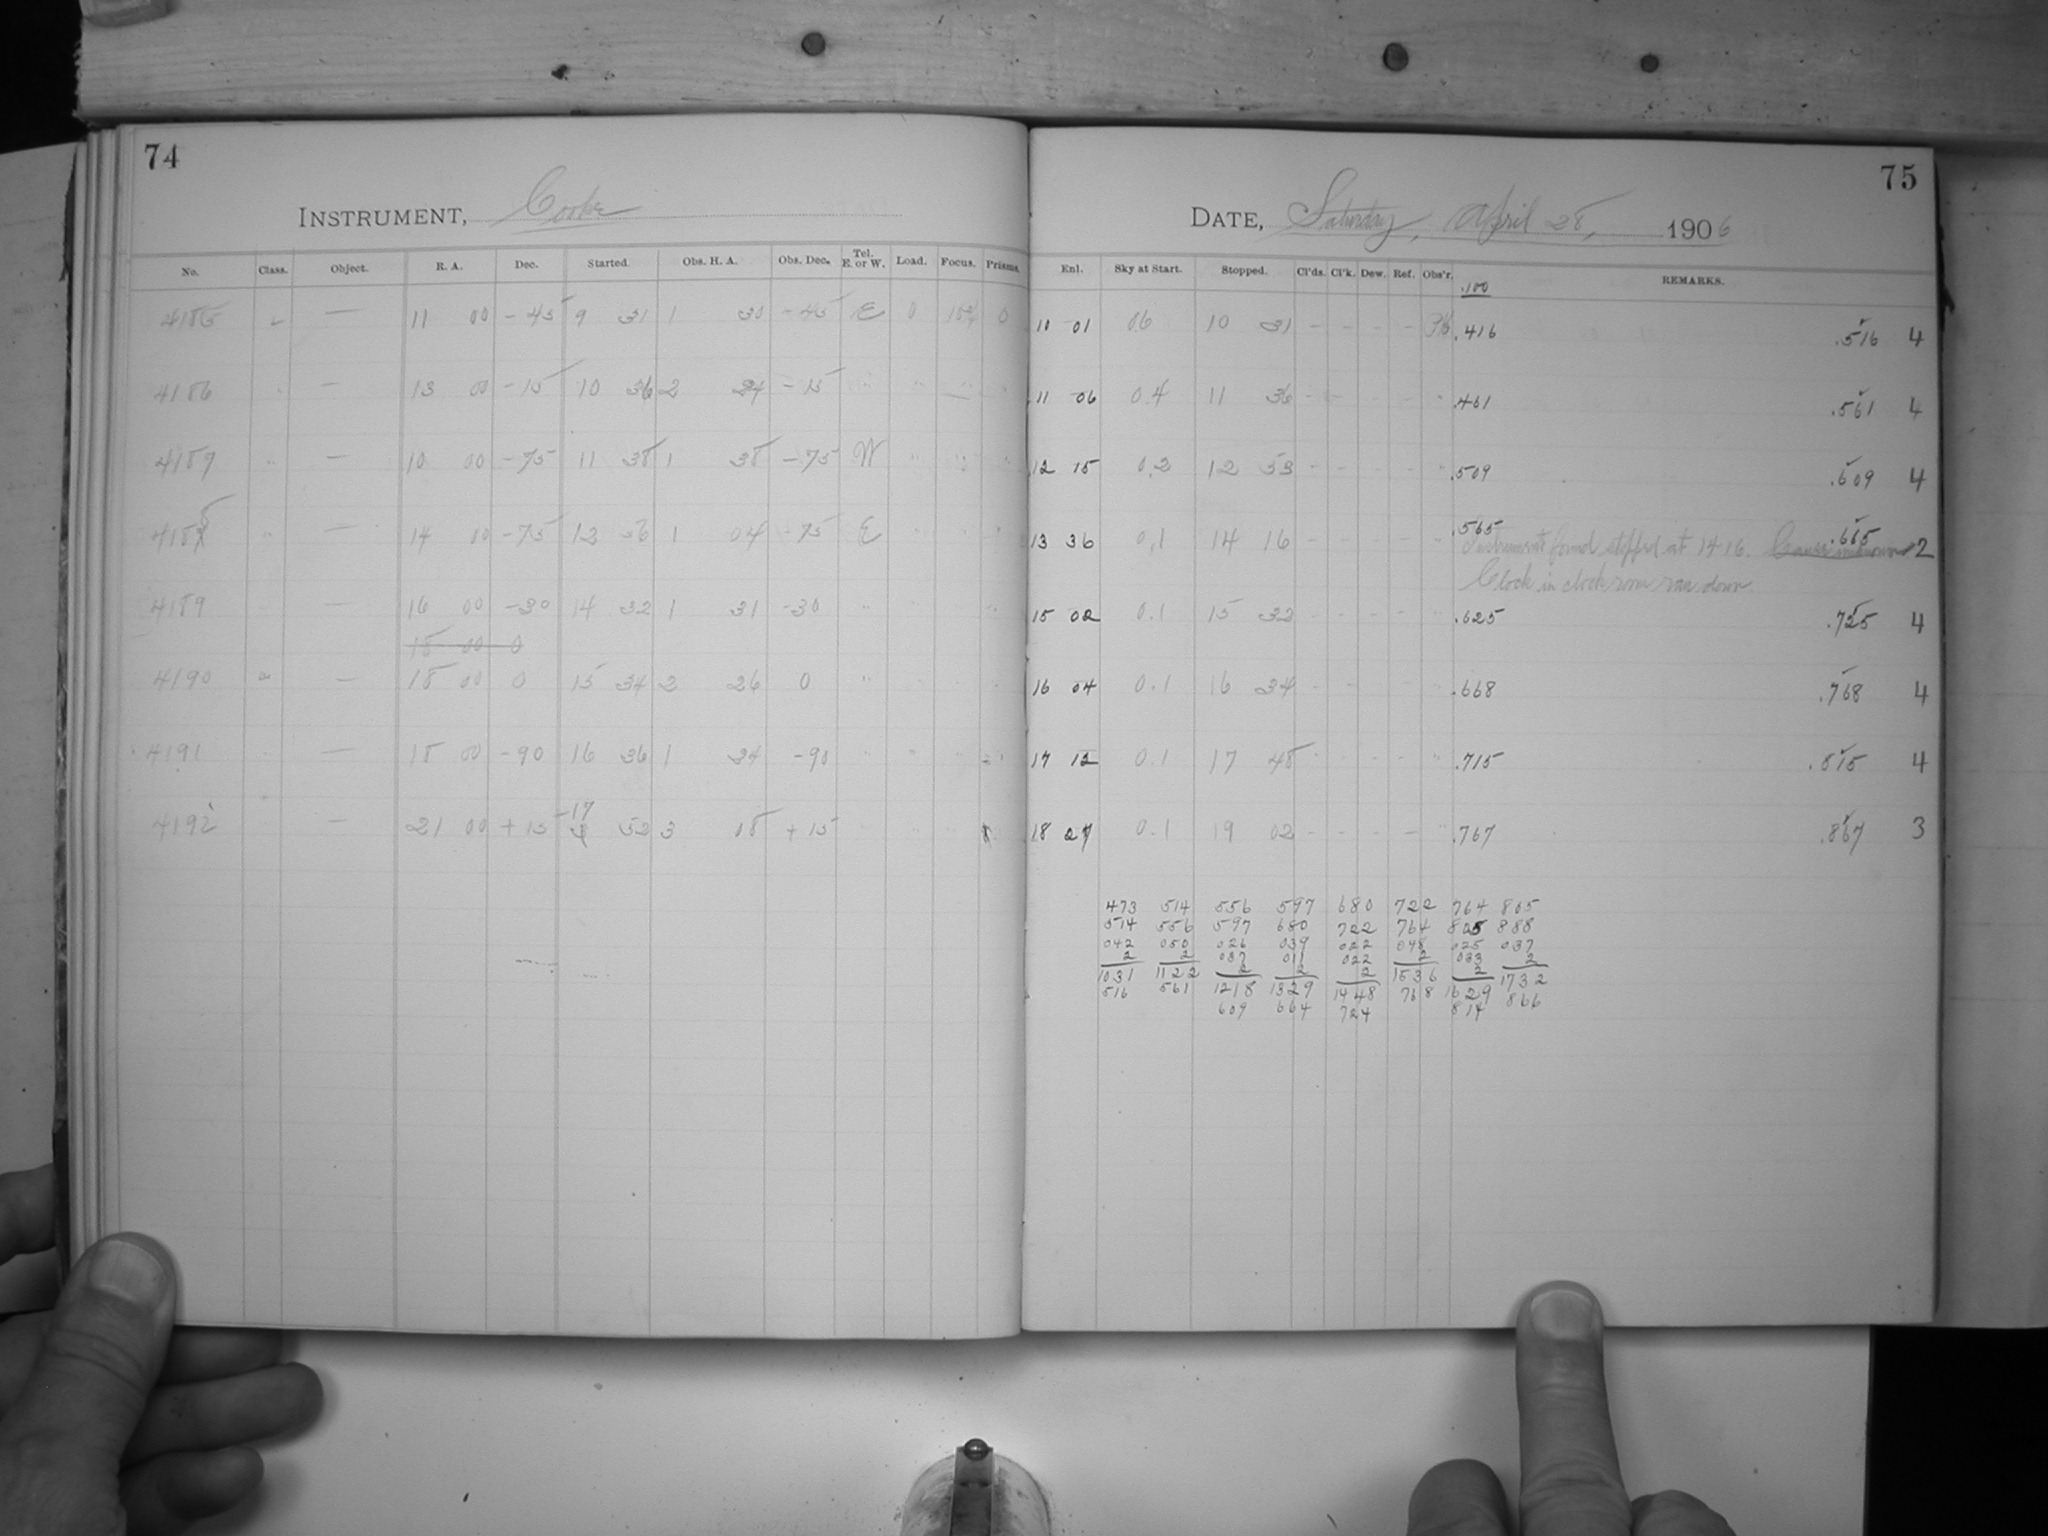 74
INSTRUMENT, Cooke
No. Class. Object. R. A. Dec. Started. Obs. H. A. Obs. Dec. Tel. E. or W. Load. Focus. Prisms.
4185 — 11 00 -45 9 31 1 30 -45 E 0 0
4186 — 13 00 -15 10 36 2 24 -15
4187 " — 10 00 -75 11 38 1 38 -75 W " " "
4188 " — 14 00 -75 13 36 1 04 -75 E
4189 — 16 00 -30 14 32 1 31 -30
18 00 0
4190 " — 18 00 0 15 34 2 26 0 "
4191 — 18 00 -90 16 36 1 34 -90
4192 — 21 00 +15 17 52 3 08 +15
75
DATE, Saturday, April 28, 1906
Enl. Sky at Start. Stopped. Cl'ds. Cl'k. Dew. Ref. Obs'r. REMARKS.
.100
10 01 0.6 10 31 - - - - .416 .516 4
11 06 0.4 11 36 - - - - " .461 .561 4
12 15 0.2 12 53 - - - - " .509 .609 4
13 36 0.1 14 16 - - - - " .565 .665 2
Instrument found stopped at 14 16. Cause unknown
Clock in clock room ran down.
15 02 0.1 15 32 - - - - .625 .725 4
16 04 0.1 16 34 - - - - .668 .768 4
17 12 0.1 17 48 - - - - " .715 .815 4
18 27 0.1 19 02 - - - - " .767 .867 3
473 514 556 597 680 722 764 805
514 556 597 680 722 764 805 888
042 050 026 039 022 048 025 037
2 2 037 011 022 2 033 2
1031 1122 2 2 2 1536 2 1732
516 561 1218 1329 1448 768 1629 866
609 664 724 814